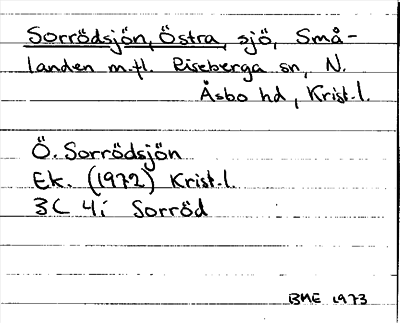 Sorrödsjön, Östra, sjö, Små-
landen m.fl. Riseberga sn, N.
Åsbo hd, Krist.l.
Ö. Sorrödsjön
Ek. (1972) Krist.l.
3C 4i Sorröd
BME 1973